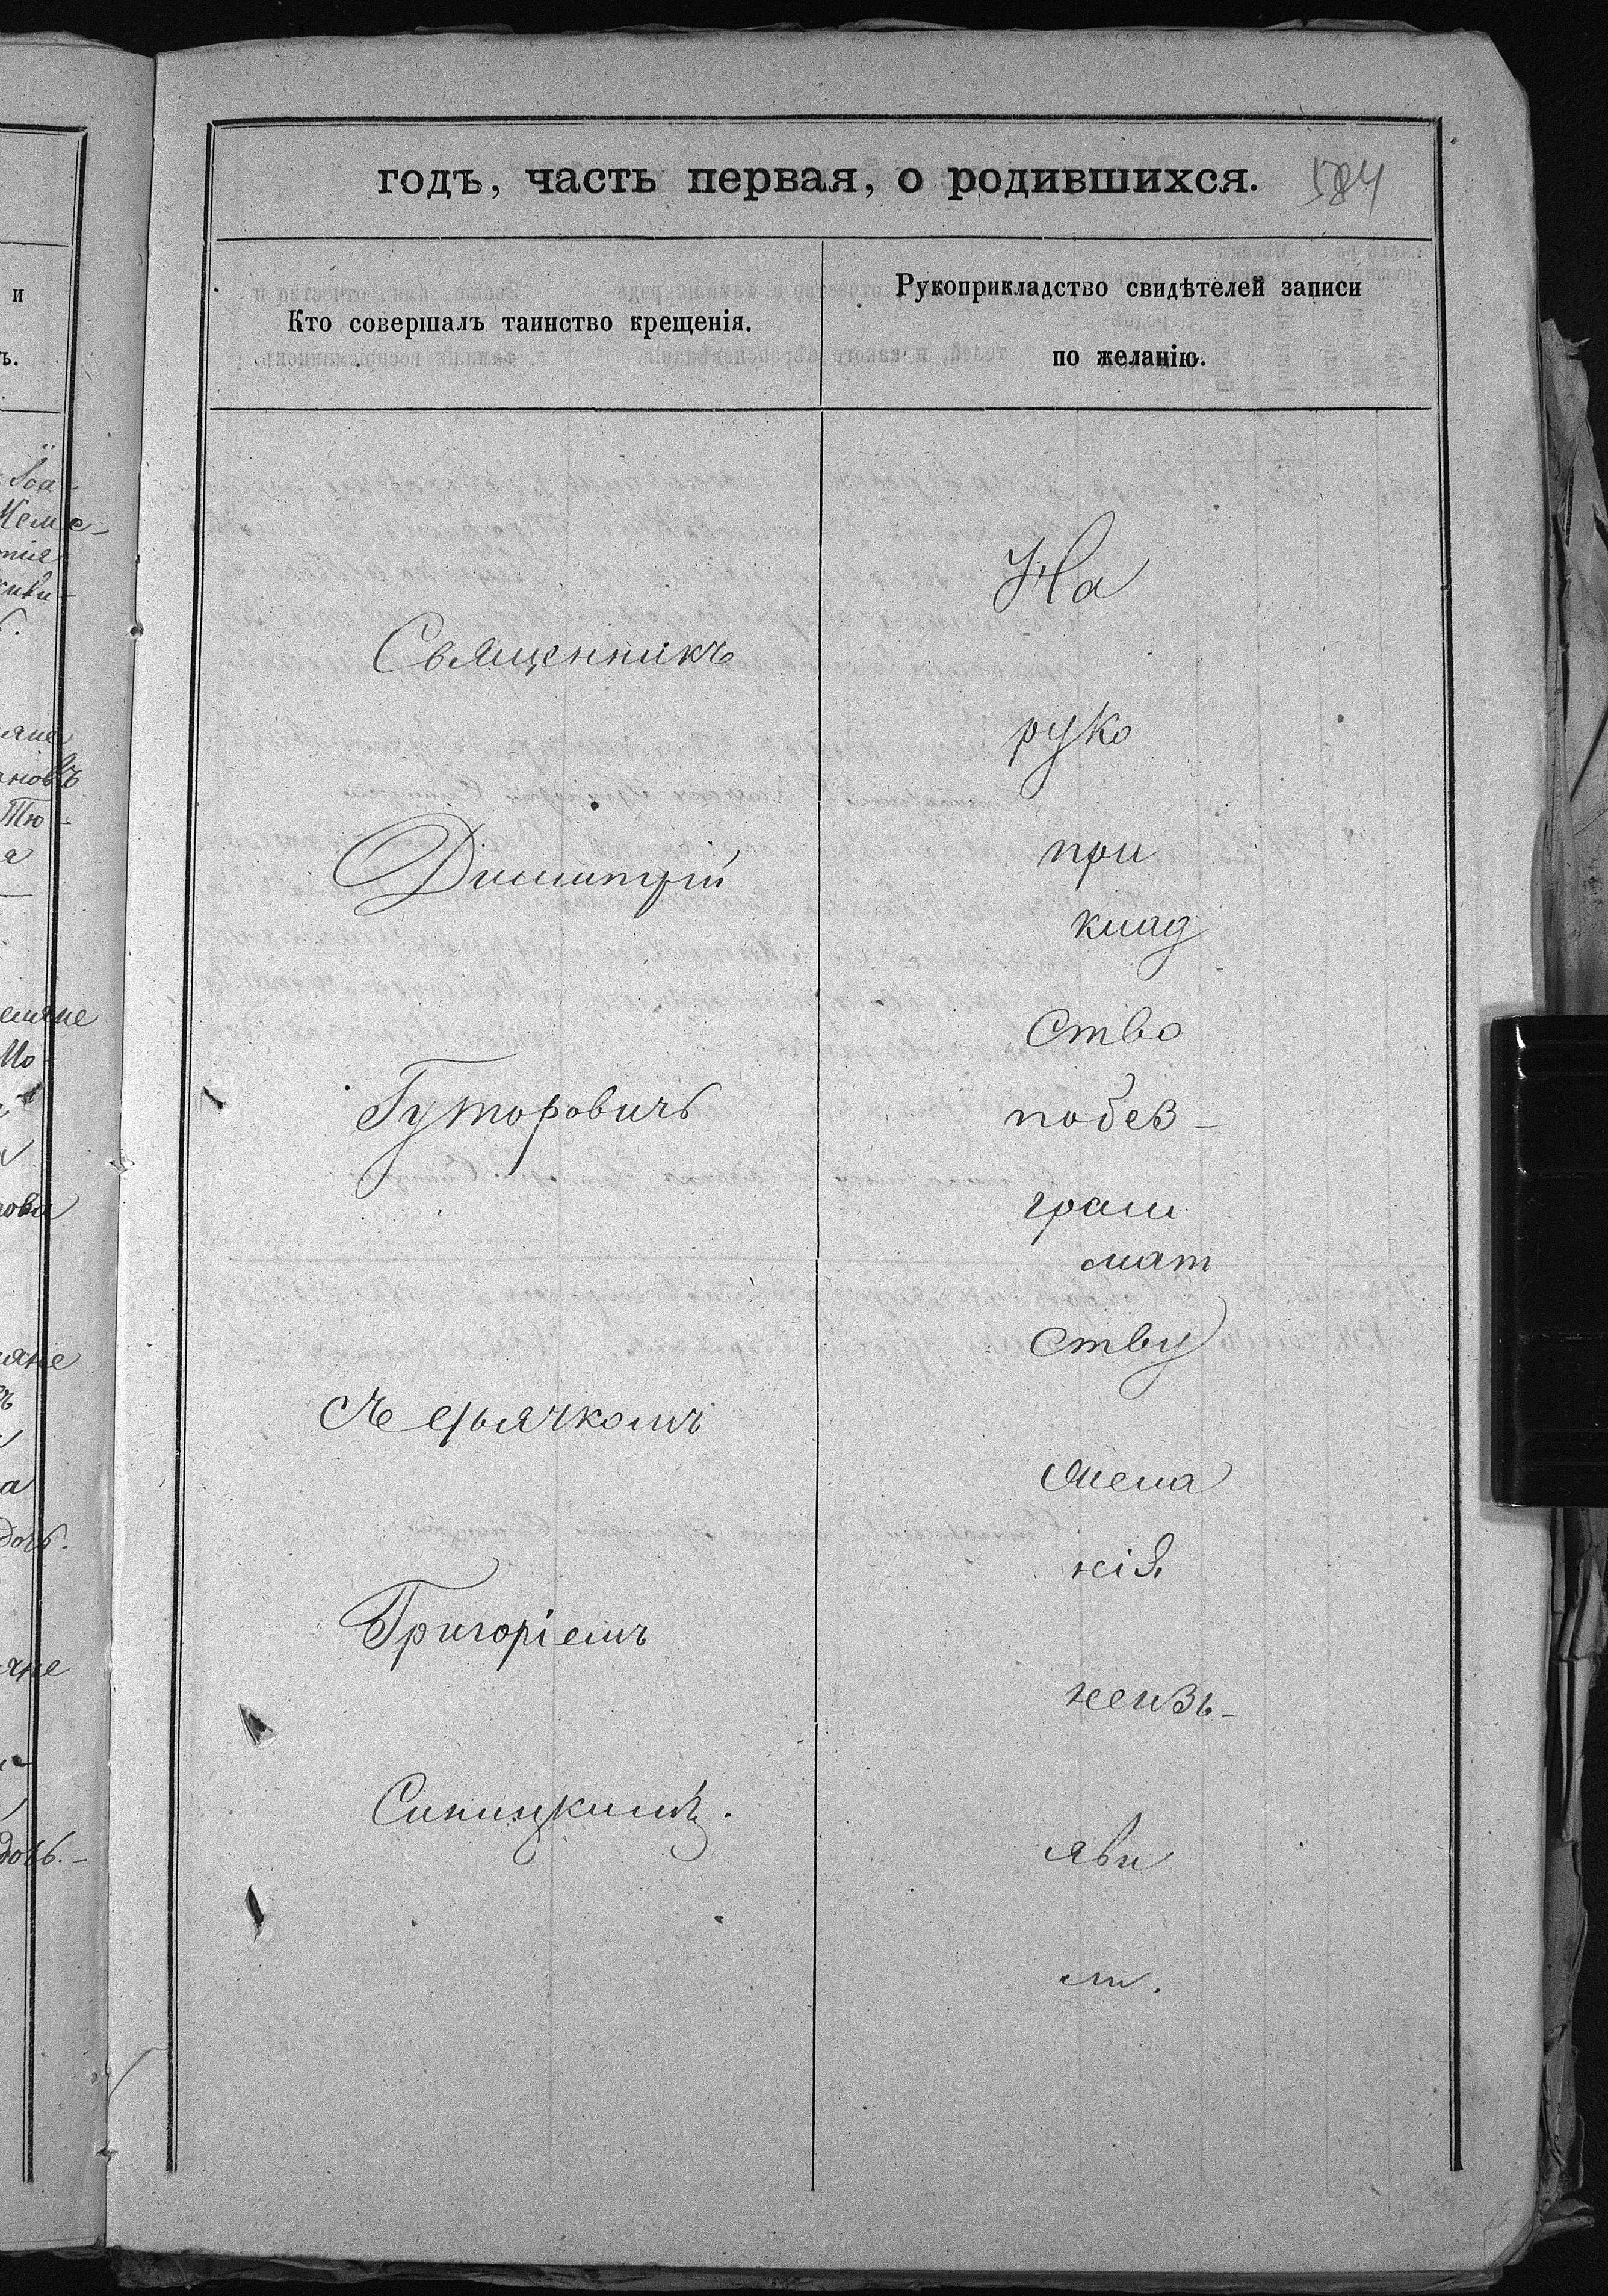 годъ, часть первая, о родившихся. 584
Кто совершалъ таинство крещенія.
Рукоприкладство свидѣтелей записи
по желанію.
Священникъ
Димитрій
Гуторовичъ
съ дьячкомъ
Григоріемъ
Синицкимъ.
На
руко
при
клад
ство
по без-
грам
мат
ству
жела
нія
не изъ-
яви
ли.